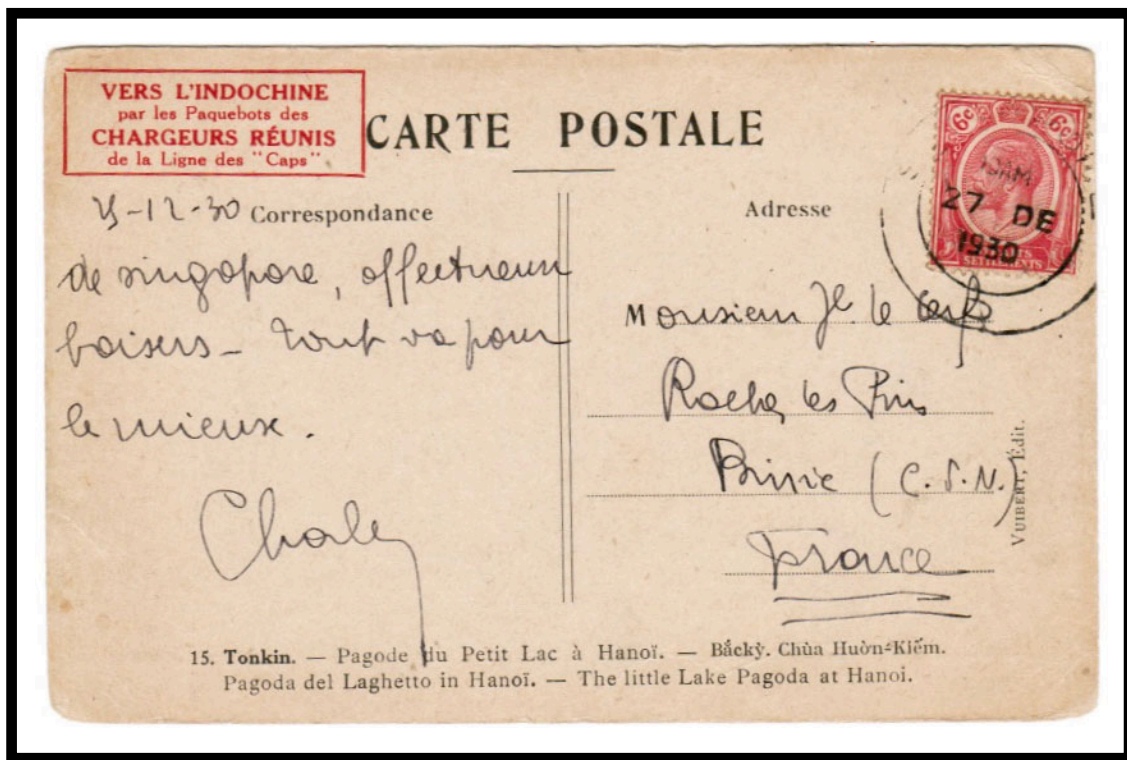 VERS L'INDOCHINE
par les Paquebots des
CHARGEURS RÉUNIS
de la Ligne des "Caps"
CARTE POSTALE
25-12-30 Correspondance
Adresse
de singapore, affectueux
baisers - tout va pour
le mieux.
6c 6c
27 DE
1930
SETTLEMENTS
Monsieur
les Pins
(C.d.N.)
France
VUIBERT, Édit.
15. Tonkin. — Pagode du Petit Lac à Hanoï. — Băckỳ. Chùa Huờn-Kiếm.
Pagoda del Laghetto in Hanoï. — The little Lake Pagoda at Hanoi.